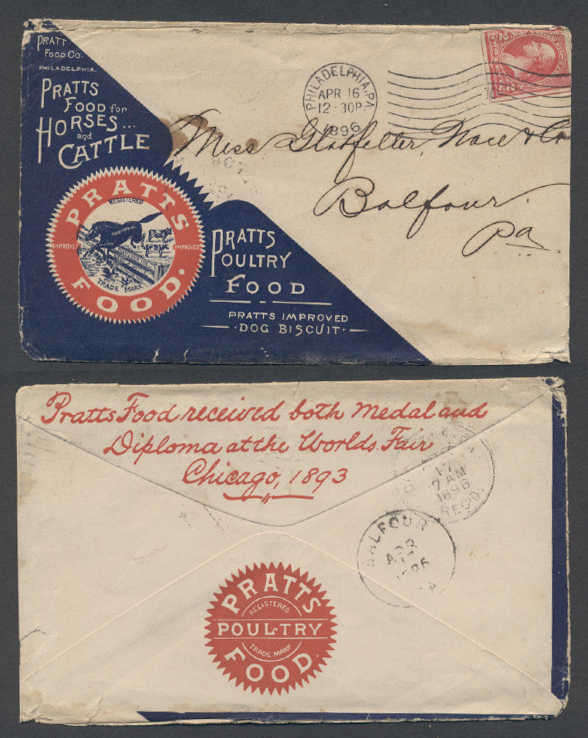 PRATT
FOOD CO.
PHILADELPHIA.
PRATTS
FOOD for
HORSES...
and
CATTLE
PRATTS
REGISTERED
IMPROVED IMPROVED
TRADE MARK
FOOD.
PRATTS
POULTRY
FOOD
PRATTS IMPROVED
DOG BISCUIT
PHILADELPHIA, PA
APR 16
12-30P
1896
Miss Glatfelter, Nace & Co
Balfour
Pa
Pratts Food received both Medal and
Diploma at the Worlds Fair
Chicago, 1893
17
7 AM
1896
REC'D.
BALFOUR
APR
17
1896
PA
PRATTS
REGISTERED
POULTRY
TRADE MARK
FOOD